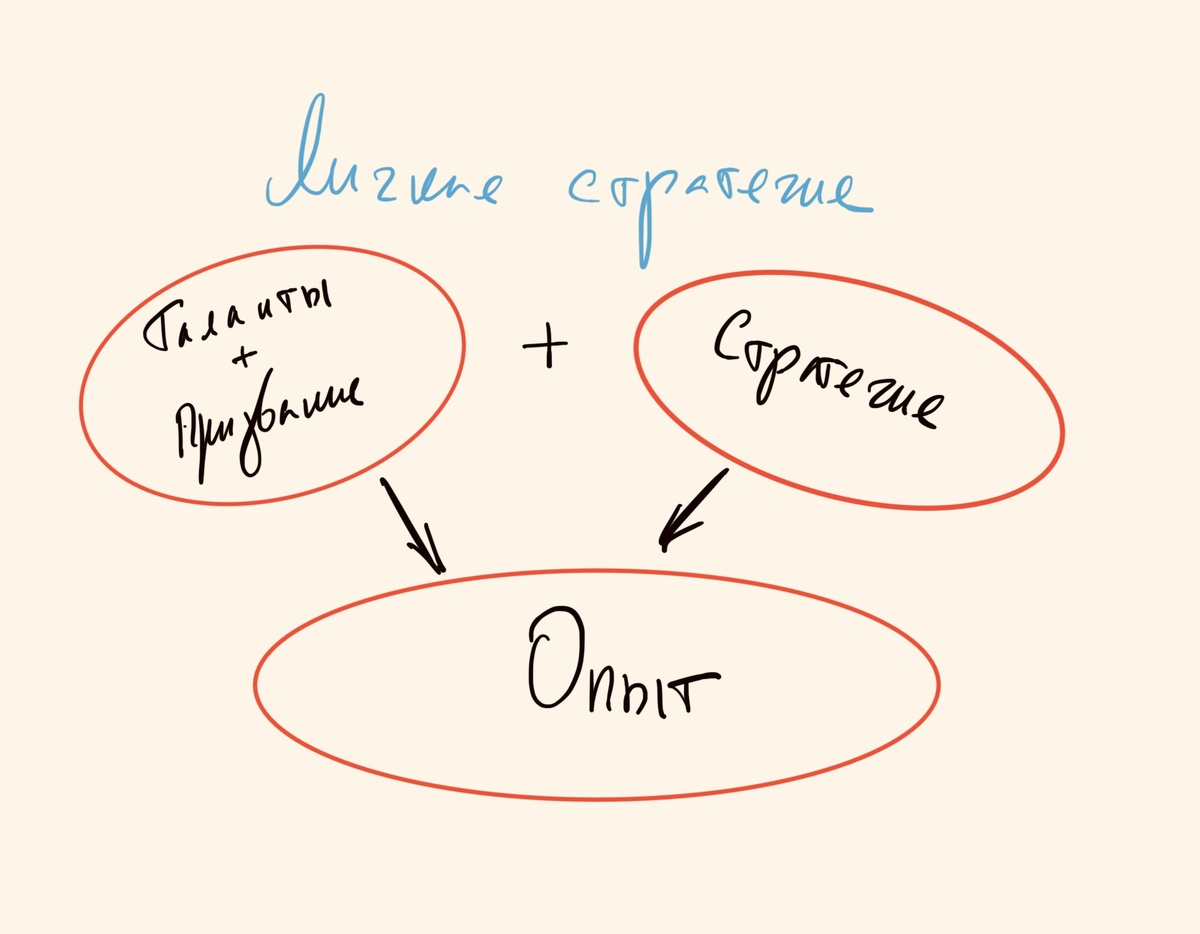 Личные стратегие
Таланты
+
Призвание
+
Стратегие
Опыт